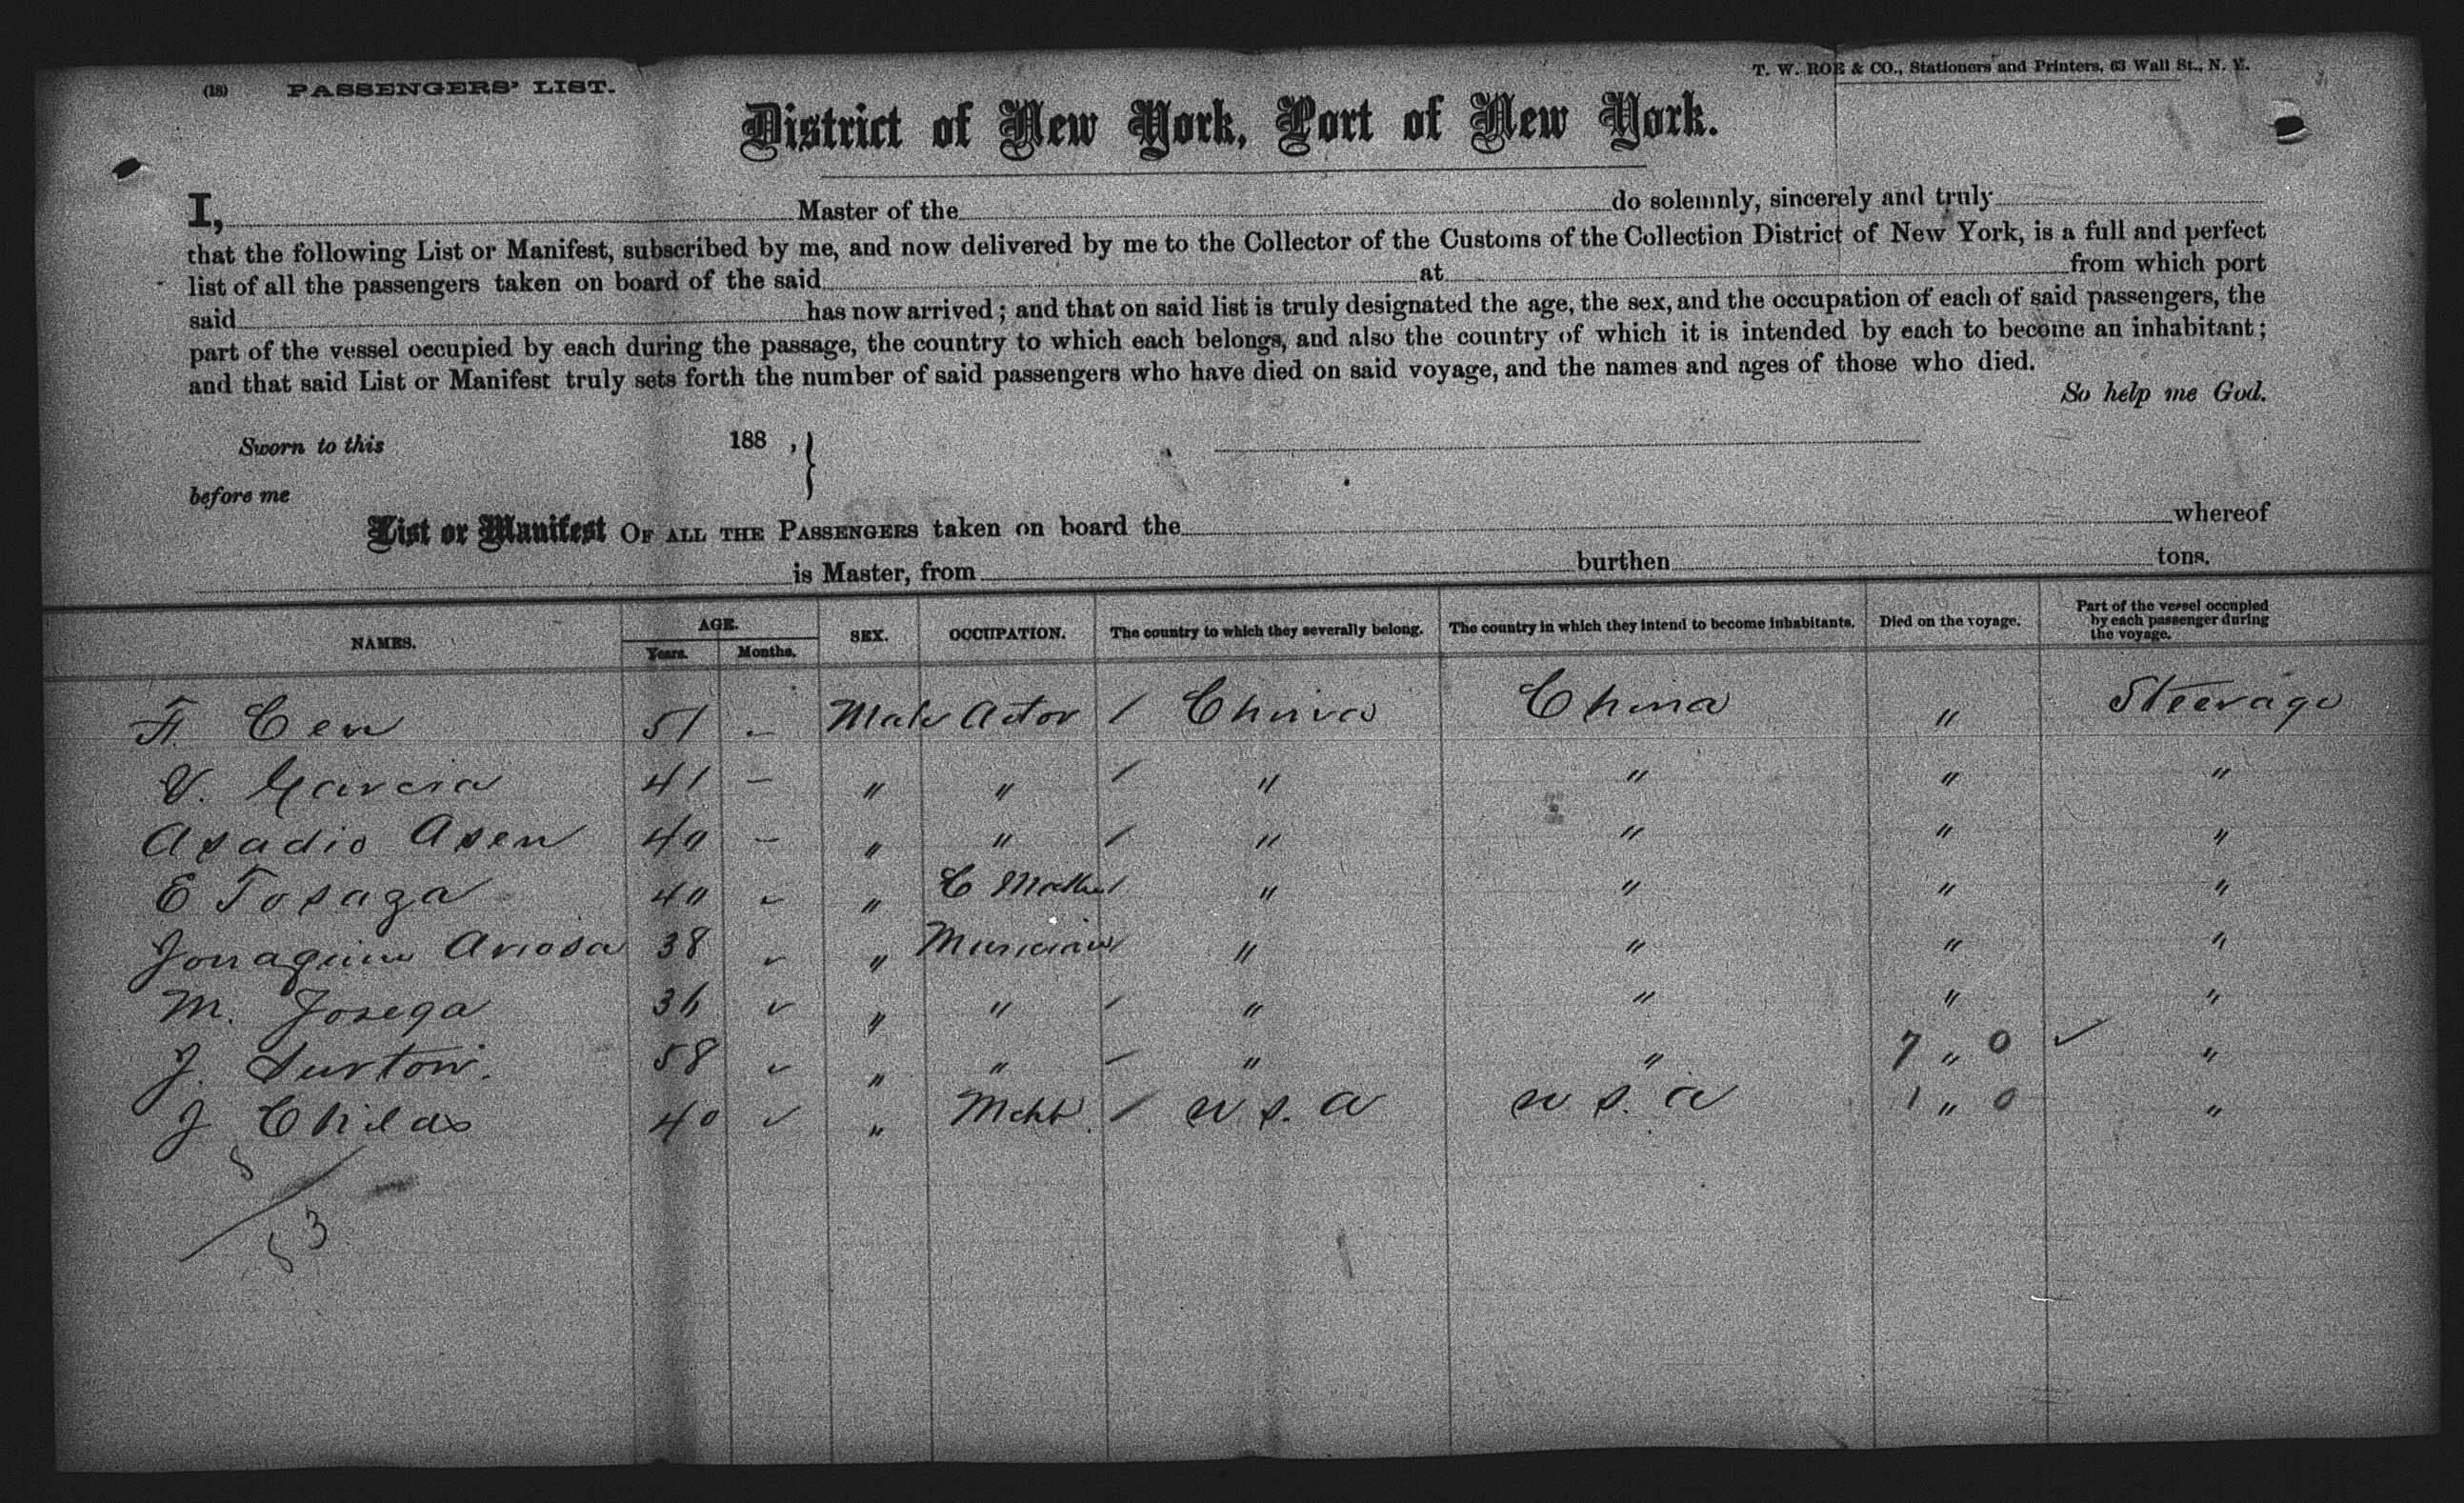 (18) PASSENGERS' LIST.
T. W. ROE & CO., Stationers and Printers, 63 Wall St., N. Y.
District of New York, Port of New York.
I, Master of the do solemnly, sincerely and truly
that the following List or Manifest, subscribed by me, and now delivered by me to the Collector of the Customs of the Collection District of New York, is a full and perfect
list of all the passengers taken on board of the said at from which port
said has now arrived; and that on said list is truly designated the age, the sex, and the occupation of each of said passengers, the
part of the vessel occupied by each during the passage, the country to which each belongs, and also the country of which it is intended by each to become an inhabitant;
and that said List or Manifest truly sets forth the number of said passengers who have died on said voyage, and the names and ages of those who died.
So help me God.
Sworn to this 188 , }
before me
List or Manifest OF ALL THE PASSENGERS taken on board the whereof
is Master, from burthen tons.
NAMES. AGE. Years. Months. SEX. OCCUPATION. The country to which they severally belong. The country in which they intend to become inhabitants. Died on the voyage. Part of the vessel occupied by each passenger during the voyage.
F. Cen 51 - Male Actor / China China " Steerage
V. Garcia 41 - " " / " " " "
Asadio Asen 40 - " " / " " " "
E Tosaga 40 - " C / " " " "
Ariosa 38 " Musician / " " " "
M. Josega 36 " " / " " " "
J. Surton. 58 " " / " " 7 " 0 "
J Childs 40 " Mcht / U S. A U S. A 1 " 0 "
53